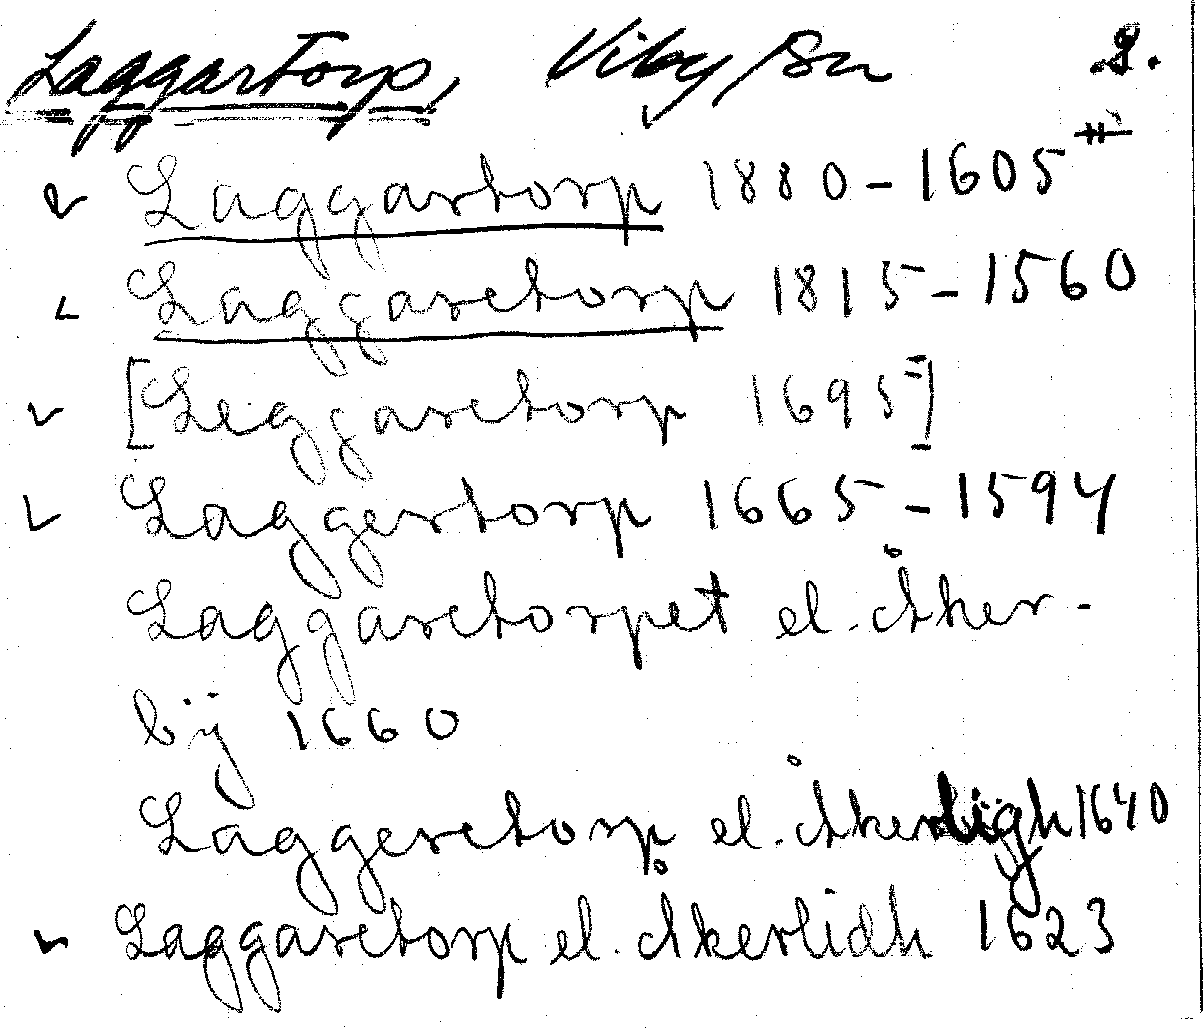 Laggartorp, Viby/Sn 2.
Laggartorp 1880-1605
Laggaretorp 1815-1560
[Leggaretorp 1695]
Laggertorp 1665-1594
Laggaretorpet el. Åker-
bÿ 1660
Laggeretorp el. 1640
Laggaretorp el. Åkerlidh 1623